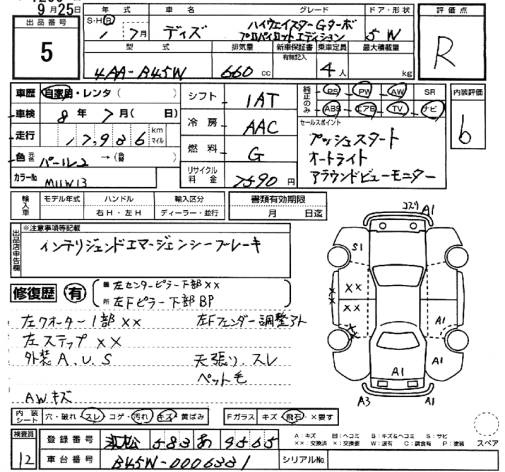 9月25日
出品番号 5
年式 車名 グレード ドア・形状 評価点
S・H・R 1年7月 デイズ ハイウェイスターGターボ プロパイロットエディション 5W R
型式 排気量 新車保証書 乗車定員 最大積載量
有無記入
4AA-B45W 660cc 4人 kg
車歴 自家用・レンタ( ) シフト 1AT 純正のみ PS PW AW SR 内装評価
車検 8年7月( 日) ABS エアB TV ナビ b
走行 17,986 km マイル 冷房 AAC セールスポイント
プッシュスタート
色 パール2 →( ) 燃料 G オートライト
カラーNo リサイクル料金 7590円 アラウンドビューモニター
輸入車 モデル年式 ハンドル 輸入区分 書類有効期限
年 右H・左H ディーラー・並行 月 日迄
出品店申告欄 ※注意事項等記載
インテリジェンドエマージェンシーブレーキ
コスリ A1
S1
修復歴 有 左センターピラー下部××
左Fピラー下部BP
左クオーター1部×× 左Fフェンダー調整アト
左ステップ××
外装A.U.S 天張り.スレ
ペット毛
AWキズ
A1
A1
A1
A3 A1
内装シート 穴・破れ スレ コゲ・汚れ キズ 黄ばみ Fガラス キズ 飛石 ×要す スペア
検査員 12 登録番号 浜松 583あ 9565
車台番号 B45W-0006331 シリアルNo.